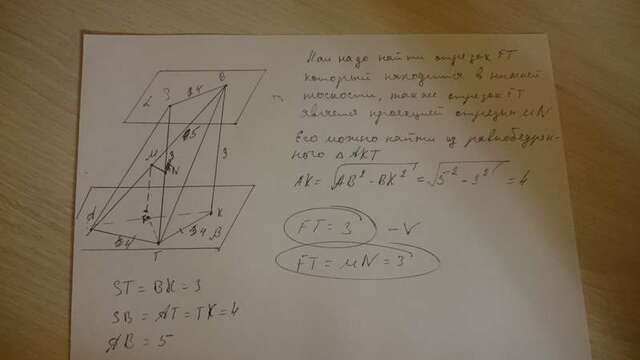 Нам надо найти отрезок FT
который находится в нижней
плоскости, также отрезок FT
является проекцией отрезка MN
Его можно найти из равнобедрен-
ного Δ AKT
AK = √AB² - BK² = √5² - 3² = 4
FT = 3 - V
FT = MN = 3
L
S
4
B
5
M
3
N
3
A
F
K
4
T
4
β
ST = BK = 3
SB = AT = TK = 4
AB = 5